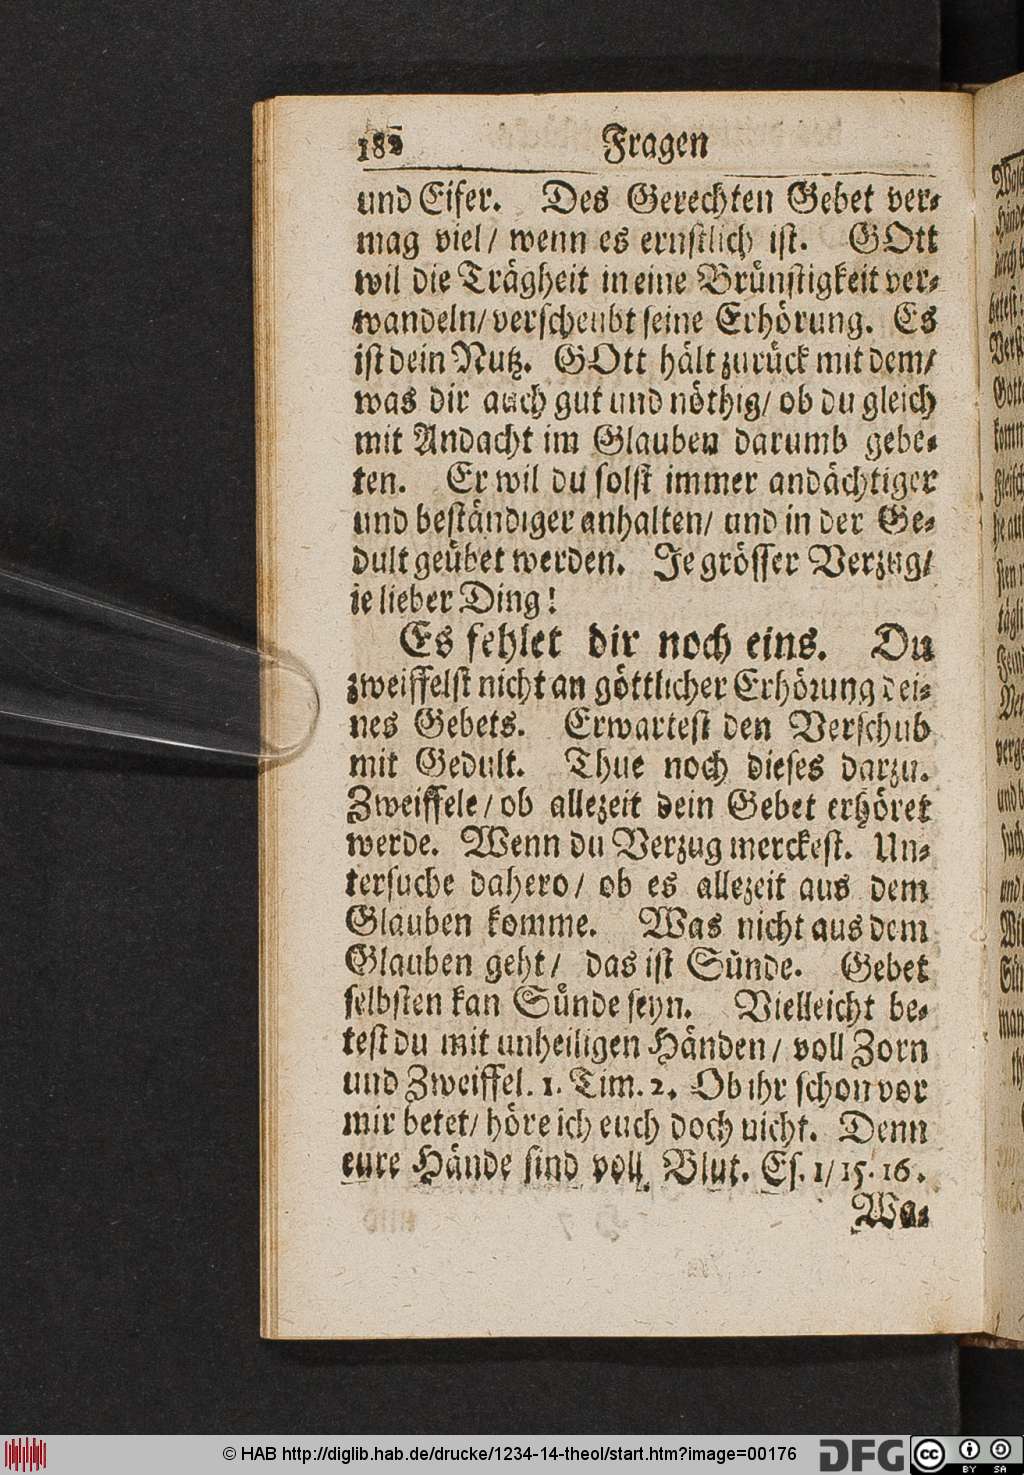 182 Fragen
und Eifer. Des Gerechten Gebet ver-
mag viel/ wenn es ernstlich ist. GOtt
wil die Trägheit in eine Brünstigkeit ver-
wandeln/ verscheubt seine Erhörung. Es
ist dein Nutz. GOtt hält zurück mit dem/
was dir auch gut und nöthig/ ob du gleich
mit Andacht im Glauben darumb gebe-
ten. Er wil du solst immer andächtiger
und beständiger anhalten/ und in der Ge-
dult geübet werden. Je grösser Verzug/
ie lieber Ding!
Es fehlet dir noch eins. Du
zweiffelst nicht an göttlicher Erhörung dei-
nes Gebets. Erwartest den Verschub
mit Gedult. Thue noch dieses darzu.
Zweiffele/ ob allezeit dein Gebet erhöret
werde. Wenn du Verzug merckest. Un-
tersuche dahero/ ob es allezeit aus dem
Glauben komme. Was nicht aus dem
Glauben geht/ das ist Sünde. Gebet
selbsten kan Sünde seyn. Vielleicht be-
test du mit unheiligen Händen/ voll Zorn
und Zweiffel. 1. Tim. 2. Ob ihr schon vor
mir betet/ höre ich euch doch nicht. Denn
eure Hände sind voll Blut. Es. 1/ 15. 16.
Wa-
© HAB http://diglib.hab.de/drucke/1234-14-theol/start.htm?image=00176
DFG
cc
BY SA